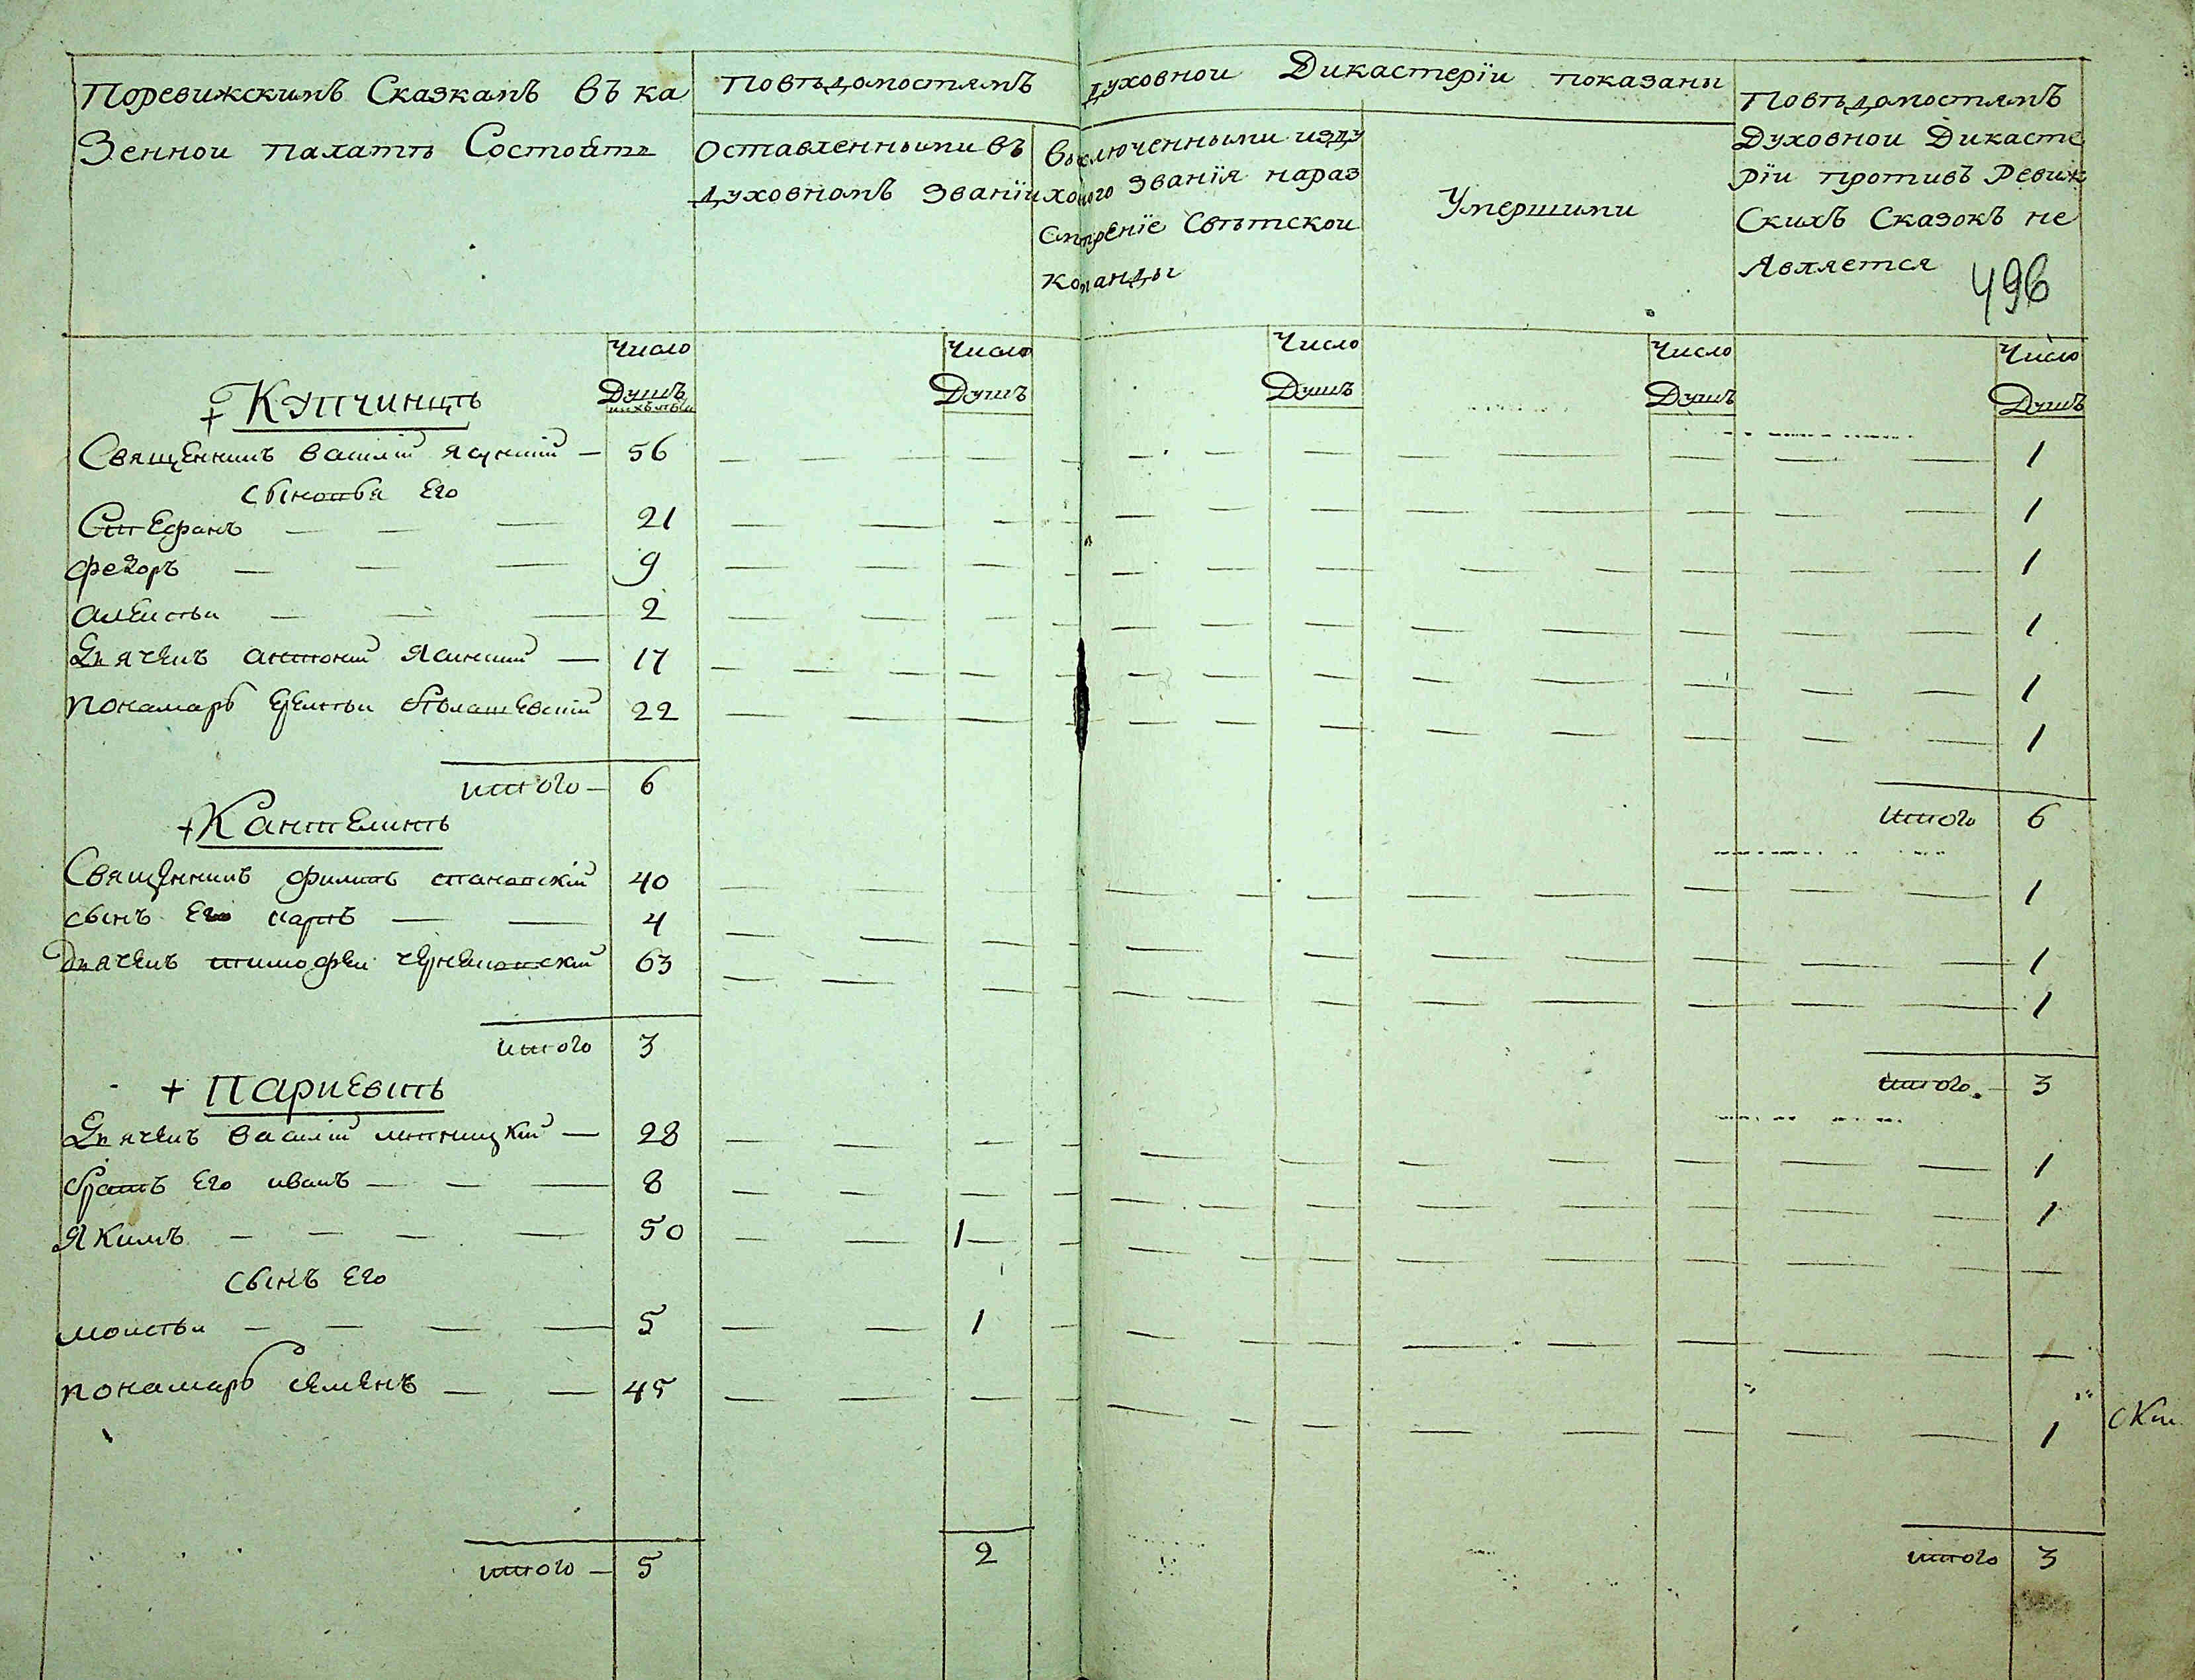 Поревижскимъ Сказкамъ въ ка
зенной палатѣ Состоитъ
Повѣдомостямъ духовнои Дикастеріи показаны
Оставленными въ
духовномъ званіи
Выключенными изду
ховного званія нараз
смотреніе Свѣтской
команды
Умершими
Повѣдомостямъ
Духовнои Дикасте
ріи противъ Ревиж
Скихъ Сказокъ не
Является
496
Число Число Число Число Число
Душъ Душъ Душъ Душъ Душъ
Купчинцѣ
Священникъ василій — 56 1
сыновья Его
Стефанъ 21 1
федоръ 9 1
алексѣи 2 1
Дьячекъ антоній Ясинскій — 17 1
пономарь 22 1
итого — 6
итого 6
Кантелинѣ
Священникъ филипъ становскій 40 1
сынъ Его карпъ 4 1
Дьячекъ тимофеи 63 1
итого 3
итого — 3
Париевцѣ
Дьячекъ василій липницкій — 28 1
братъ Его иванъ 8 1
Якимъ 50 1
сынъ Его
моисѣи 5 1
пономарь семенъ 45 1
итого — 5 2 итого 3